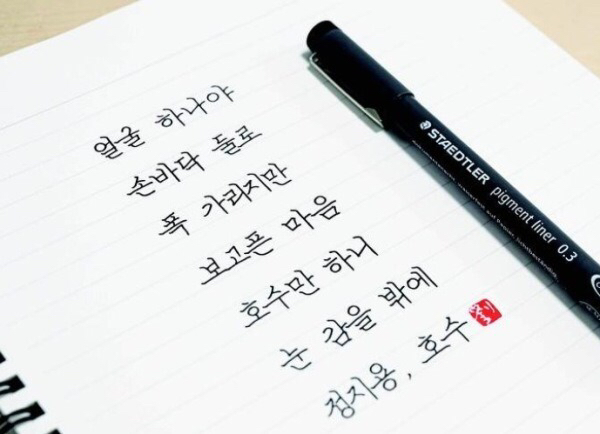 얼굴 하나야
손바닥 둘로
폭 가리지만
보고픈 마음
호수만 하니
눈 감을 밖에
정지용, 호수
STAEDTLER
pigment liner 0.3